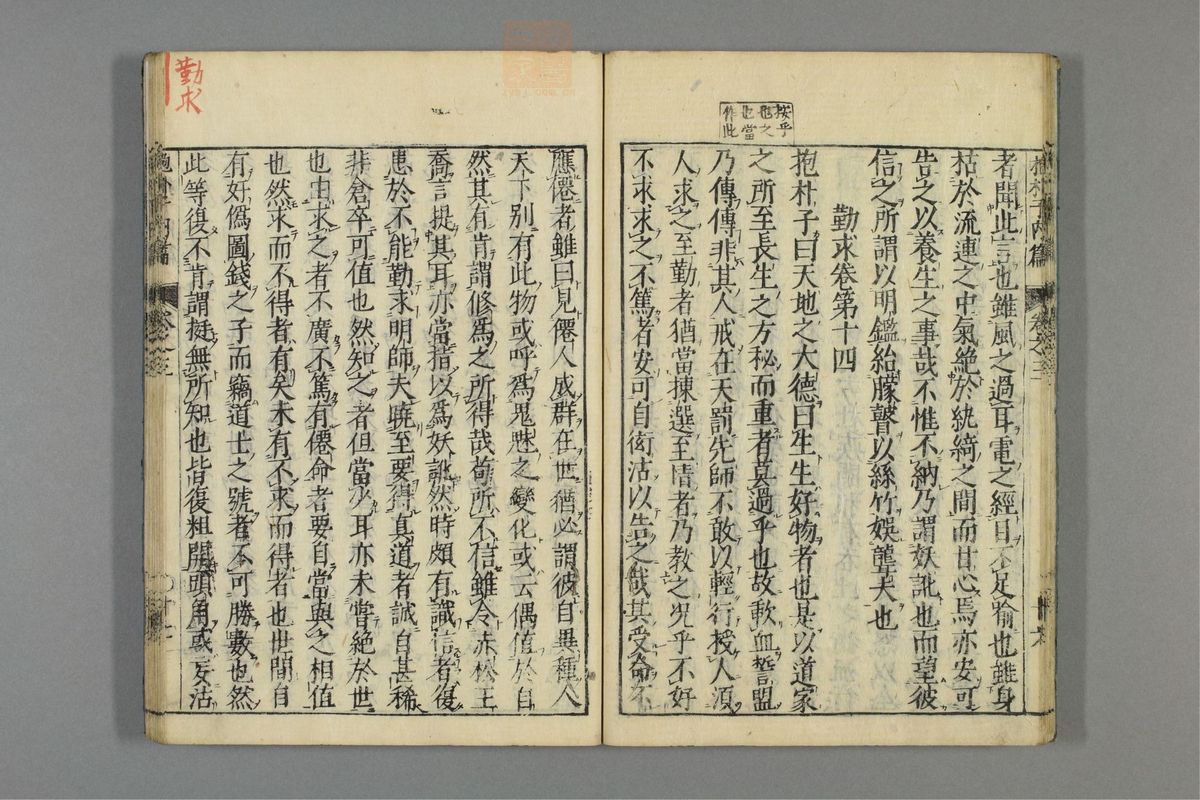 按乎
也之
也當
作此
者聞此言也雖風之過耳電之經目不足喻也雖身
枯於流連之中氣絶於紈綺之間而甘心焉亦安可
告之以養生之事哉不惟不納乃謂妖訛也而望彼
信之所謂以明鑑給矇瞽以絲竹娯聾夫也
勤求卷第十四
抱朴子曰天地之大德曰生生好物者也是以道家
之所至長生之方秘而重者莫過乎也故歃血誓盟
乃傳傳非其人戒在天罰先師不敢以輕行授人須
人求之至勤者猶當揀選至情者乃教之况乎不好
不求求之不篤者安可自衒沽以告之哉其受命不
應僊者雖曰見僊人成群在世猶必謂彼自異種人
天下别有此物或呼爲鬼魅之變化或云偶值於自
然其有肯謂修爲之所得哉苟所不信雖令赤松王
喬言提其耳亦當指以爲妖訛然時頗有識信者復
患於不能勤求明師夫曉至要得真道者誠自甚稀
非倉卒可值也然知之者但當少耳亦未嘗絶於世
也由求之者不廣不篤有僊命者要自當與之相值
也然求而不得者有矣未有不求而得者也世間自
有奸僞圖錢之子而竊道士之號者不可勝數也然
此等復不肯謂挺無所知也皆復粗開頭角或妄沽
勤求